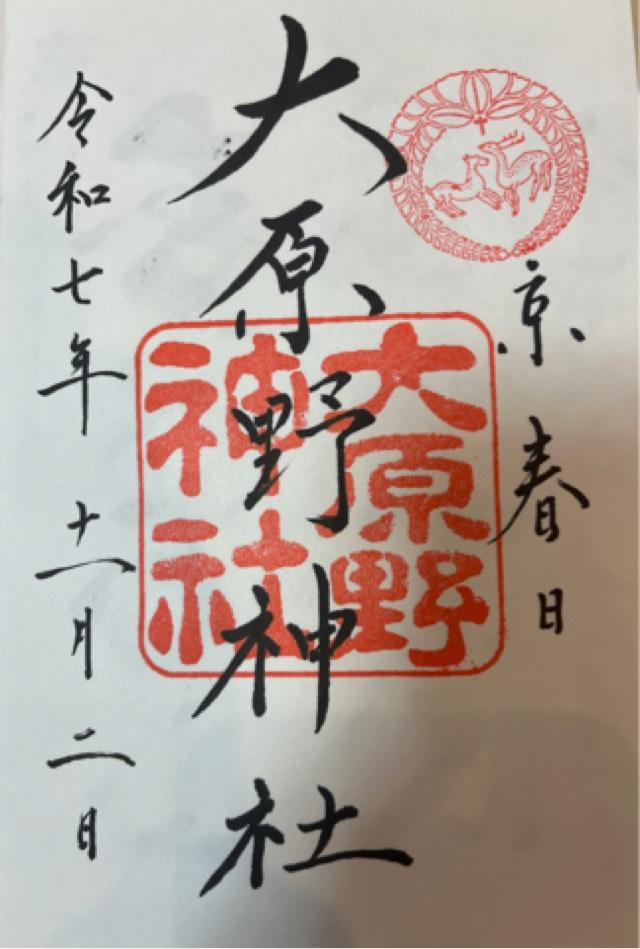 京春日
大原野神社
大原野
神社
令和七年十一月二日